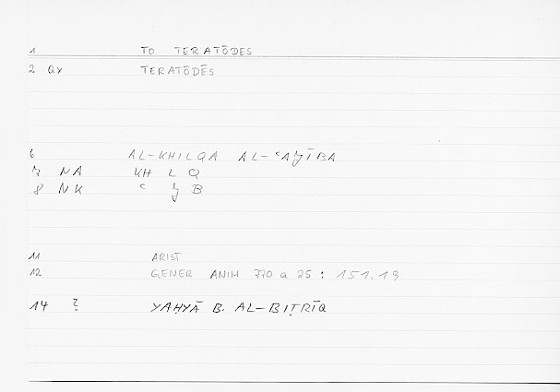 1 TO TERATŌDES
2 QY TERATŌDĒS
6 AL-KHILQA AL-ʿAǦĪBA
7 NA KH L Q
8 NK ʿ Ǧ B
11 ARIST
12 GENER ANIM 770 a 25 : 151.19
14 ? YAḤYĀ B. AL-BIṬRĪQ